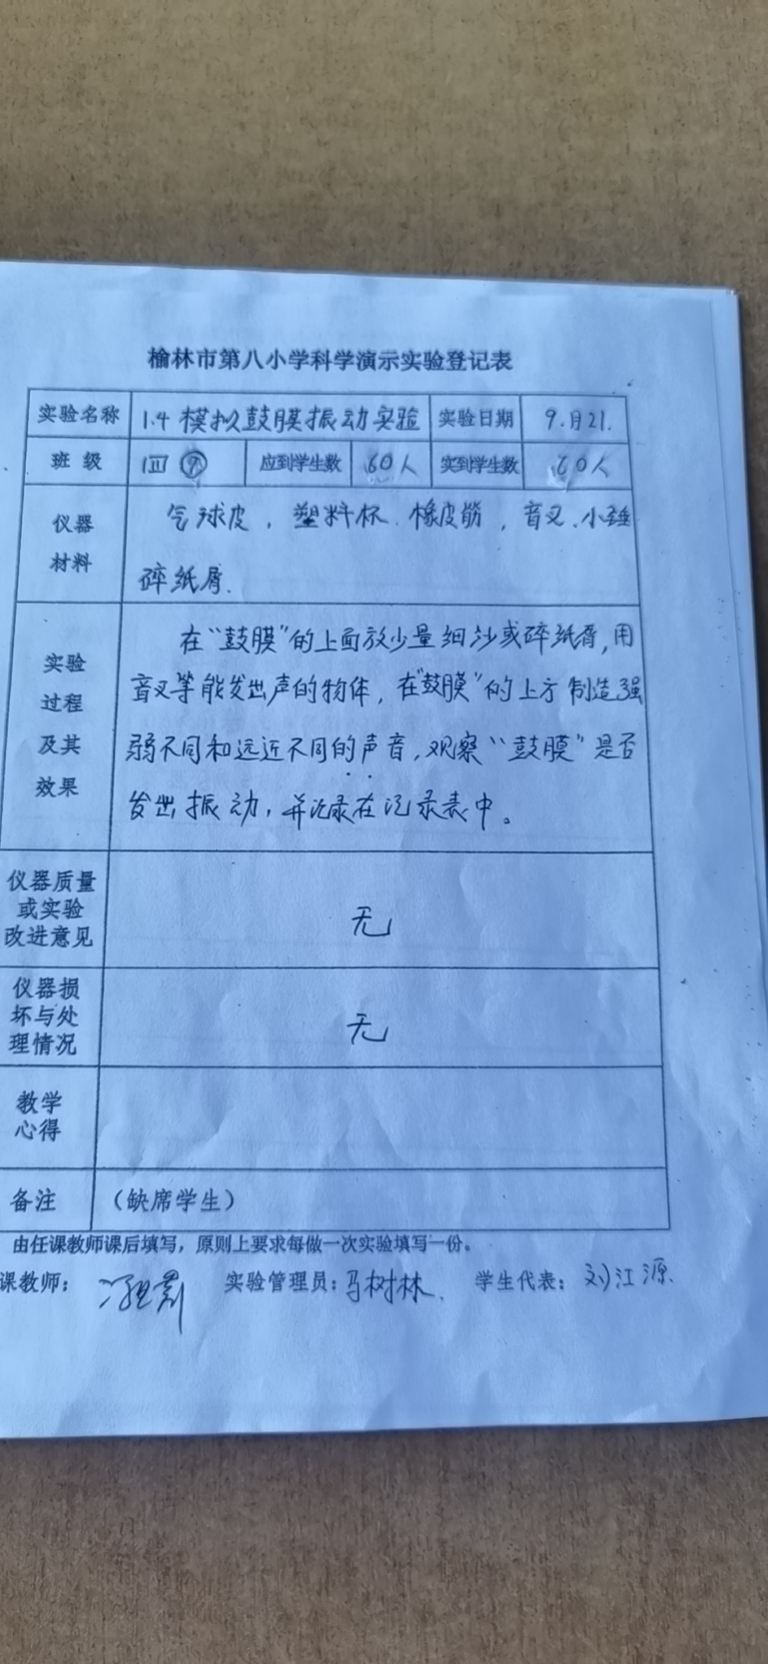 榆林市第八小学科学演示实验登记表
实验名称 1.4 模拟鼓膜振动实验 实验日期 9.月21.
班 级 四 应到学生数 60人 实到学生数 60人
仪器材料 气球皮，塑料杯.橡皮筋，音叉.小锤
碎纸屑.
实验过程及其效果 在“鼓膜”的上面放少量细沙或碎纸屑,用
音叉等能发出声的物体，在“鼓膜”的上方制造强
弱不同和远近不同的声音,观察“鼓膜”是否
发出振动,并记录在记录表中。
仪器质量或实验改进意见 无
仪器损坏与处理情况 无
教学心得
备注 （缺席学生）
由任课教师课后填写，原则上要求每做一次实验填写一份。
课教师： 实验管理员：马树林. 学生代表：刘江源.